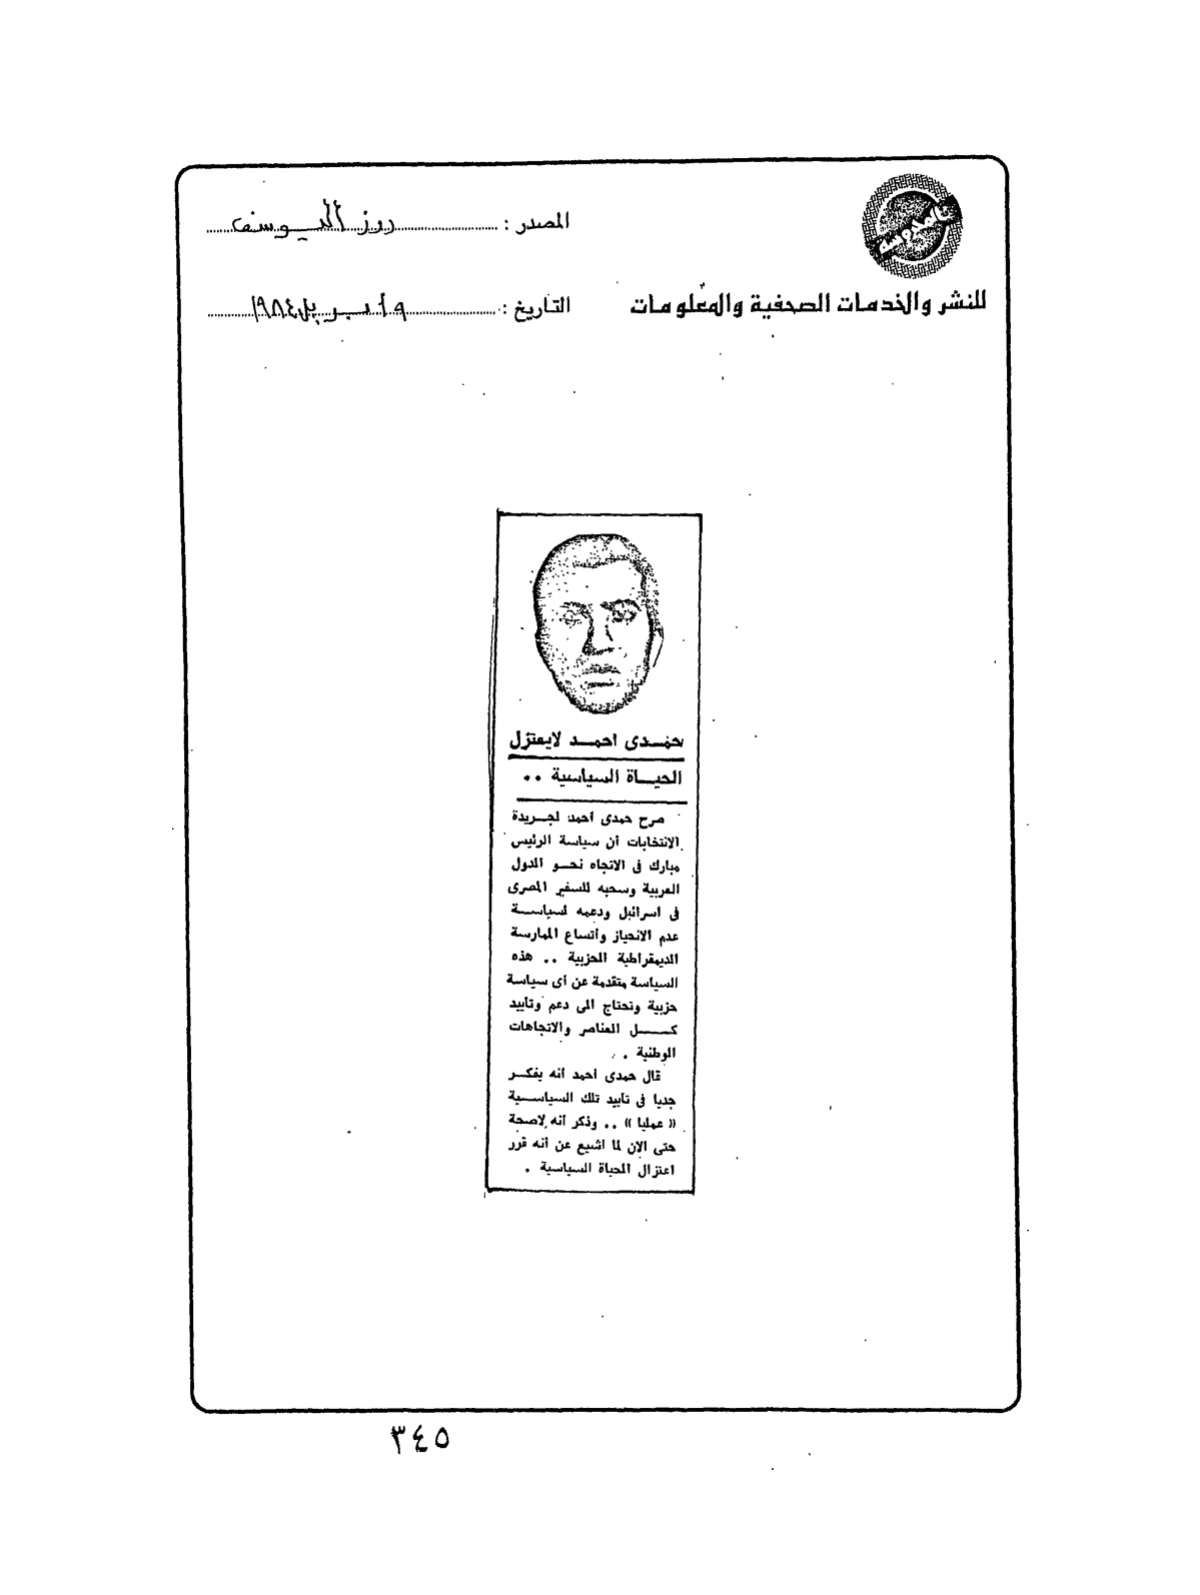 المصدر : روز اليوسف
للنشر والخدمات الصحفية والمعلومات
التاريخ : ٩ ابريل ١٩٨٤
حمـدى احمـد لايعتزل
الحيـاة السياسية ..
صرح حمدى احمد لجـريدة
الانتخابات أن سياسة الرئيس
مبارك فى الاتجاه نحـو الدول
العربية وسحبه للسفير المصرى
فى اسرائيل ودعمه لسياسـة
عدم الانحياز وأتساع الممارسة
الديمقراطية الحزبية .. هذه
السياسة متقدمة عن أى سياسة
حزبية وتحتاج الى دعم وتأييد
كـــل العناصر والاتجاهات
الوطنية .
قال حمدى احمد أنه يفكـر
جديا فى تأييد تلك السياسـية
« عمليا » .. وذكر أنه لاصحة
حتى الآن لما اشيع عن أنه قرر
اعتزال الحياة السياسية .
٣٤٥